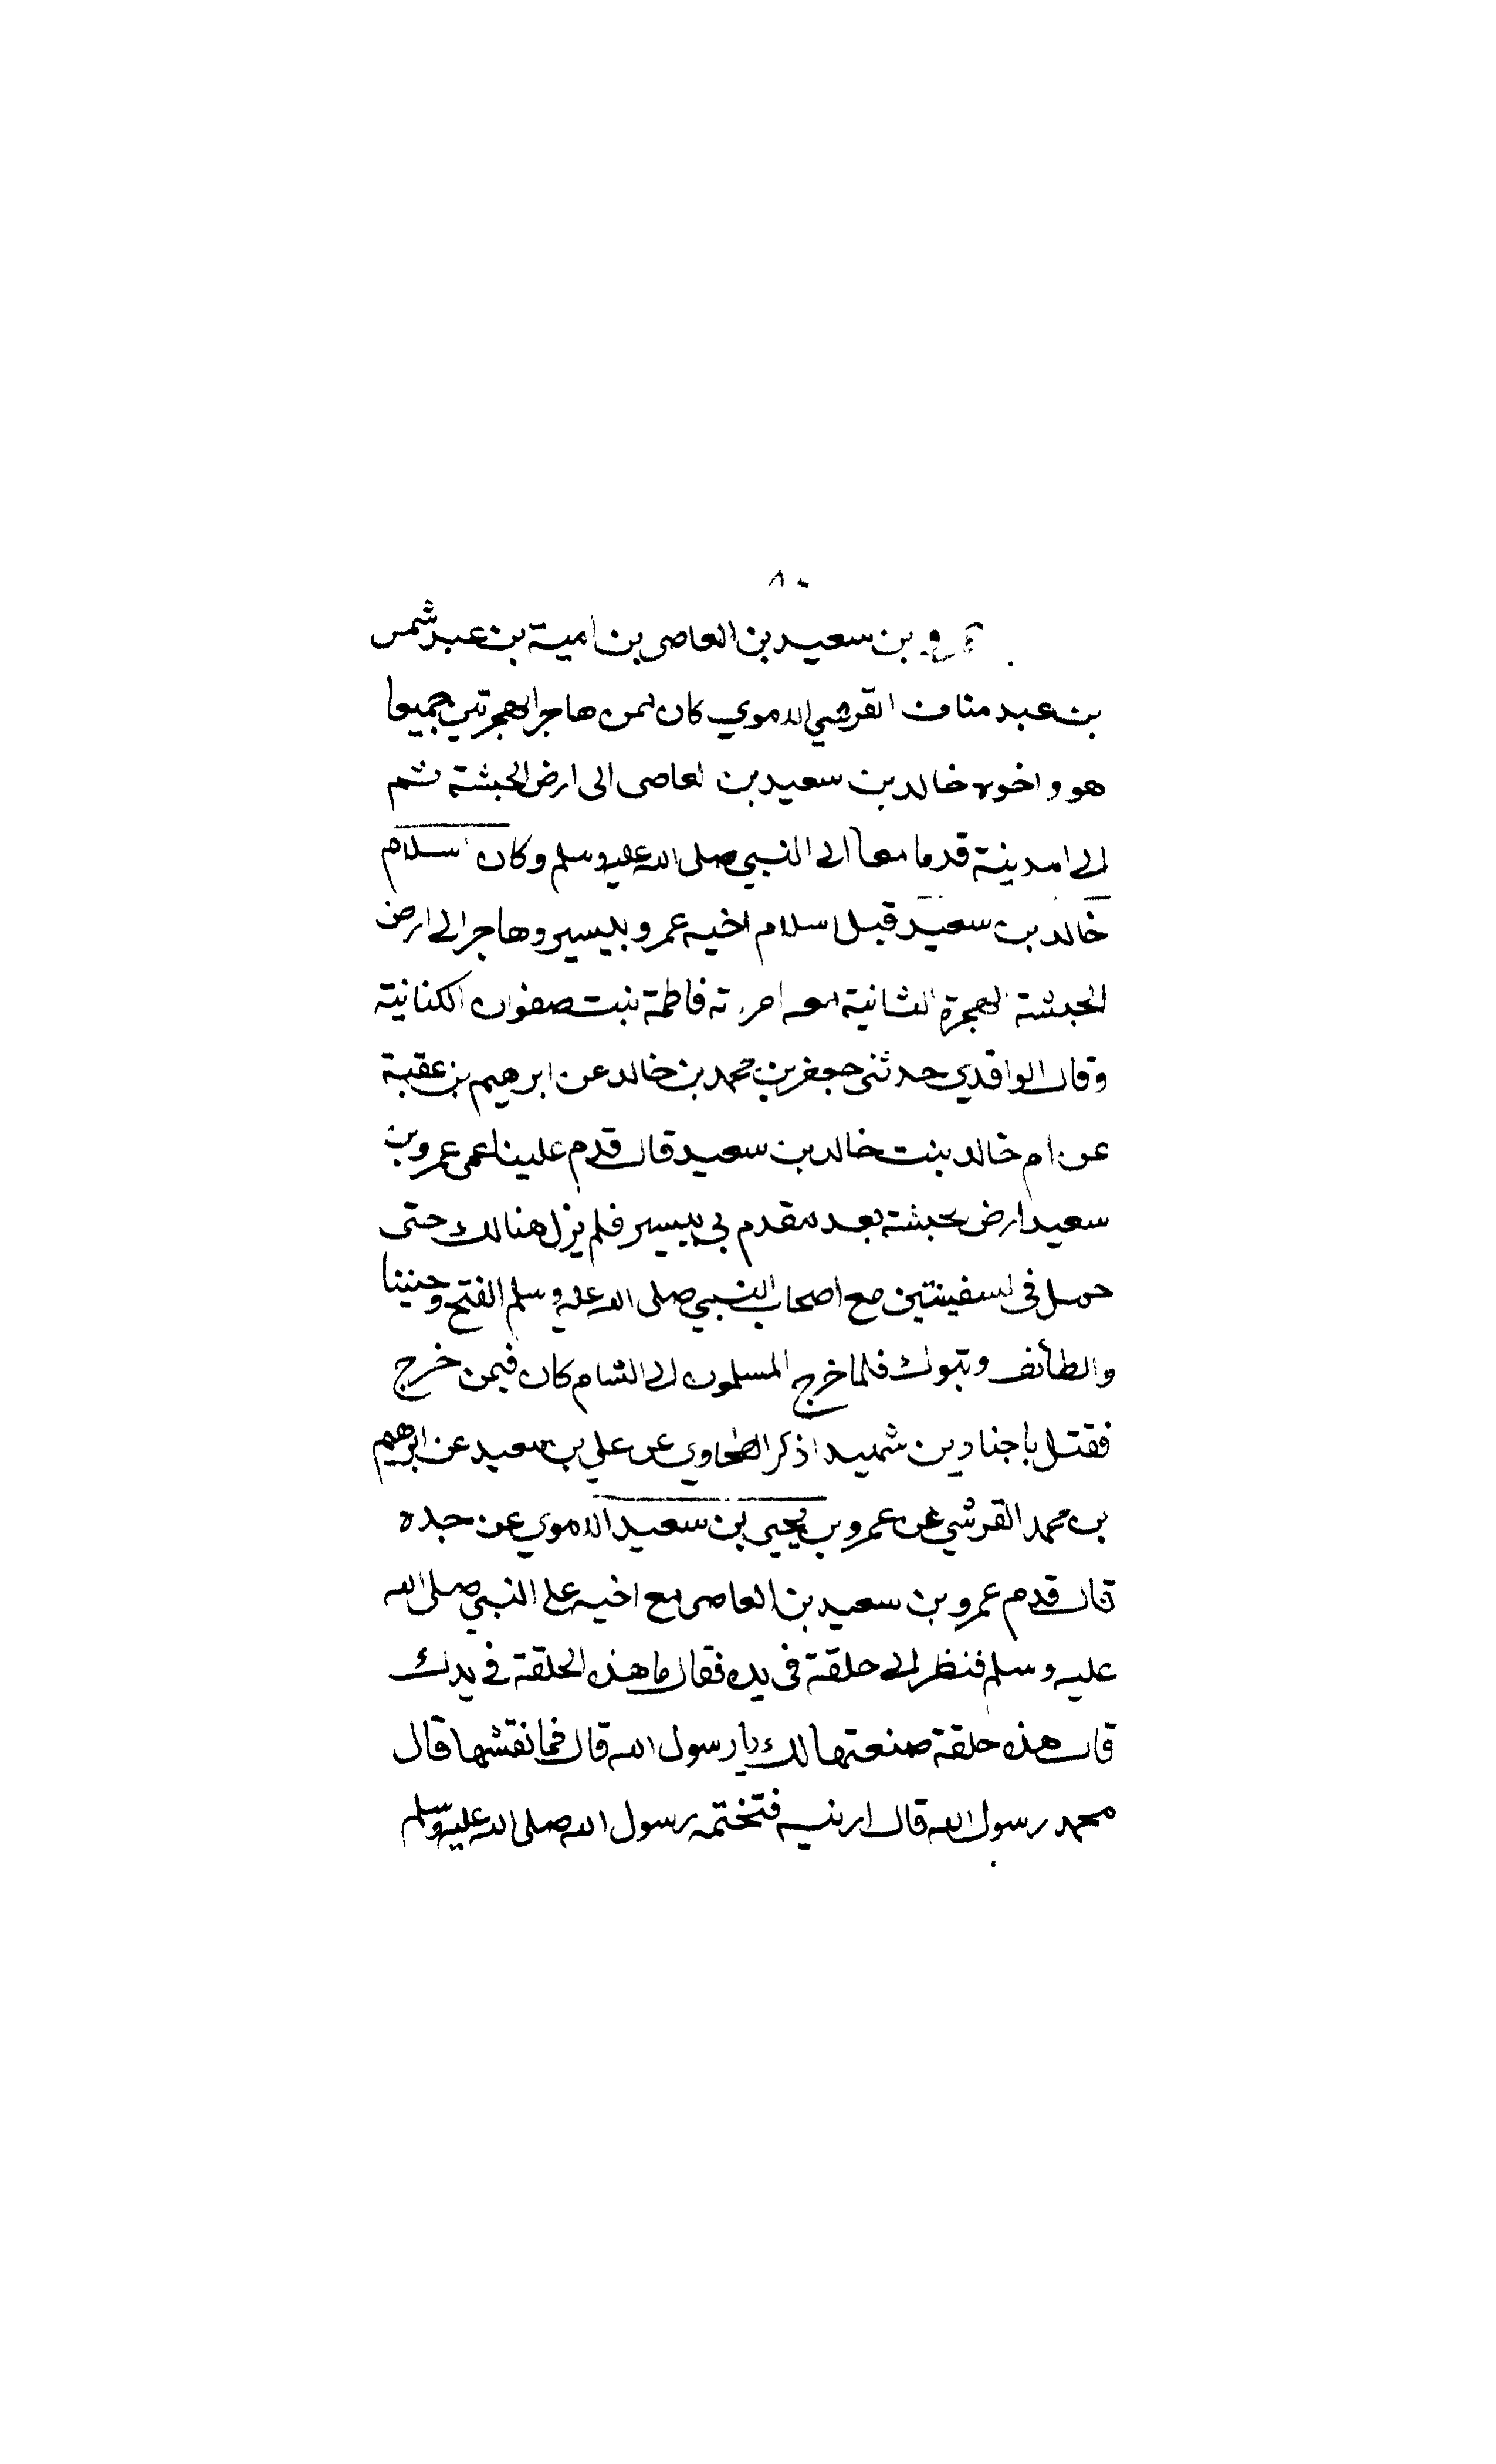 ٨٠
عمرو بن سعيد بن العاصى بن امية بن عبد شمس
بن عبد مناف القرشي الاموي كان ممن هاجر الهجرتين جميعا
هو واخوه خالد بن سعيد بن العاصى الى ارض الحبشة ثم
الى المدينة قدما معا الى النبي صلى الله عليه وسلم وكان اسلام
خالد بن سعيد قبل اسلام اخيه عمرو بيسير وهاجر الى ارض
الحبشة الهجرة الثانية معه امرءته فاطمة بنت صفوان الكنانية
وقال الواقدي حدثنى جعفر بن محمد بن خالد عن ابرهيم بن عقبة
عن ام خالد بنت خالد بن سعيد قال قدم علينا عمى عمرو بن
سعيد ارض الحبشة بعد مقدم ابي بيسير فلم يزل هنالك حتى
حمل فى السفينتين مع اصحاب النبي صلى الله عليه وسلم الفتح وحنينا
والطائف وتبوك فلما خرج المسلمون الى الشام كان فيمن خرج
فقتل باجنادين شهيدا ذكر الطحاوي عن علي بن سعيد عن ابرهيم
بن محمد القرشي عن عمرو بن يحيى بن سعيد الاموي عن جده
قال قدم عمرو بن سعيد بن العاصى مع اخيه على النبي صلى الله
عليه وسلم فنظر الى حلقة فى يده فقال ما هذه الحلقة في يدك
قال هذه حلقة صنعتها لك يا رسول الله قال فما نقشها قال
محمد رسول الله قال ارنيه فتختمه رسول الله صلى الله عليه وسلم